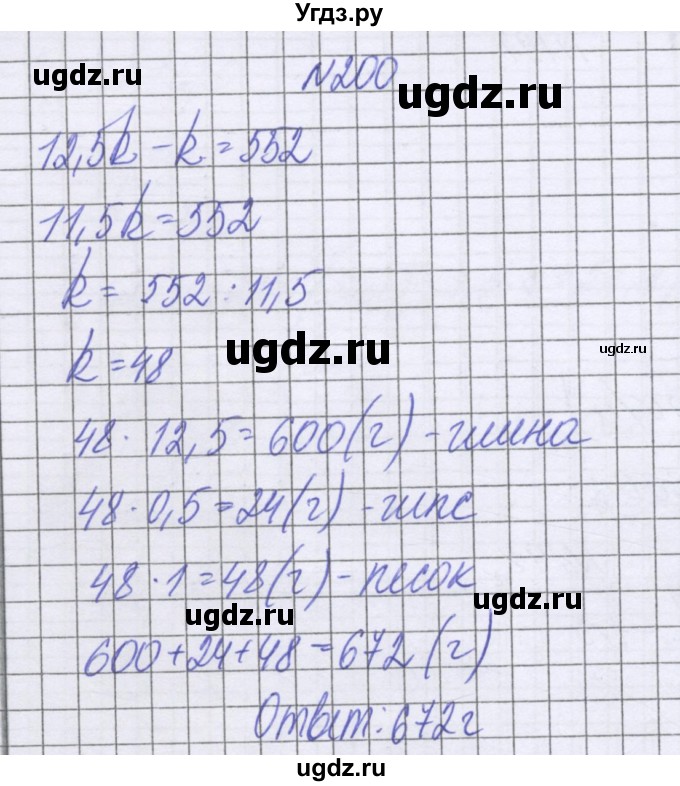 Угдз.ру
ugdz.ru
№200
ugdz.ru
12,5k - k = 552
11,5k = 552
k = 552 : 11,5
ugdz.ru
ugdz.ru
k = 48
48 · 12,5 = 600 (г) - глина
48 · 0,5 = 24 (г) - гипс
48 · 1 = 48 (г) - песок
ugdz.ru
ugdz.ru
600 + 24 + 48 = 672 (г)
Ответ: 672 г
ugdz.ru